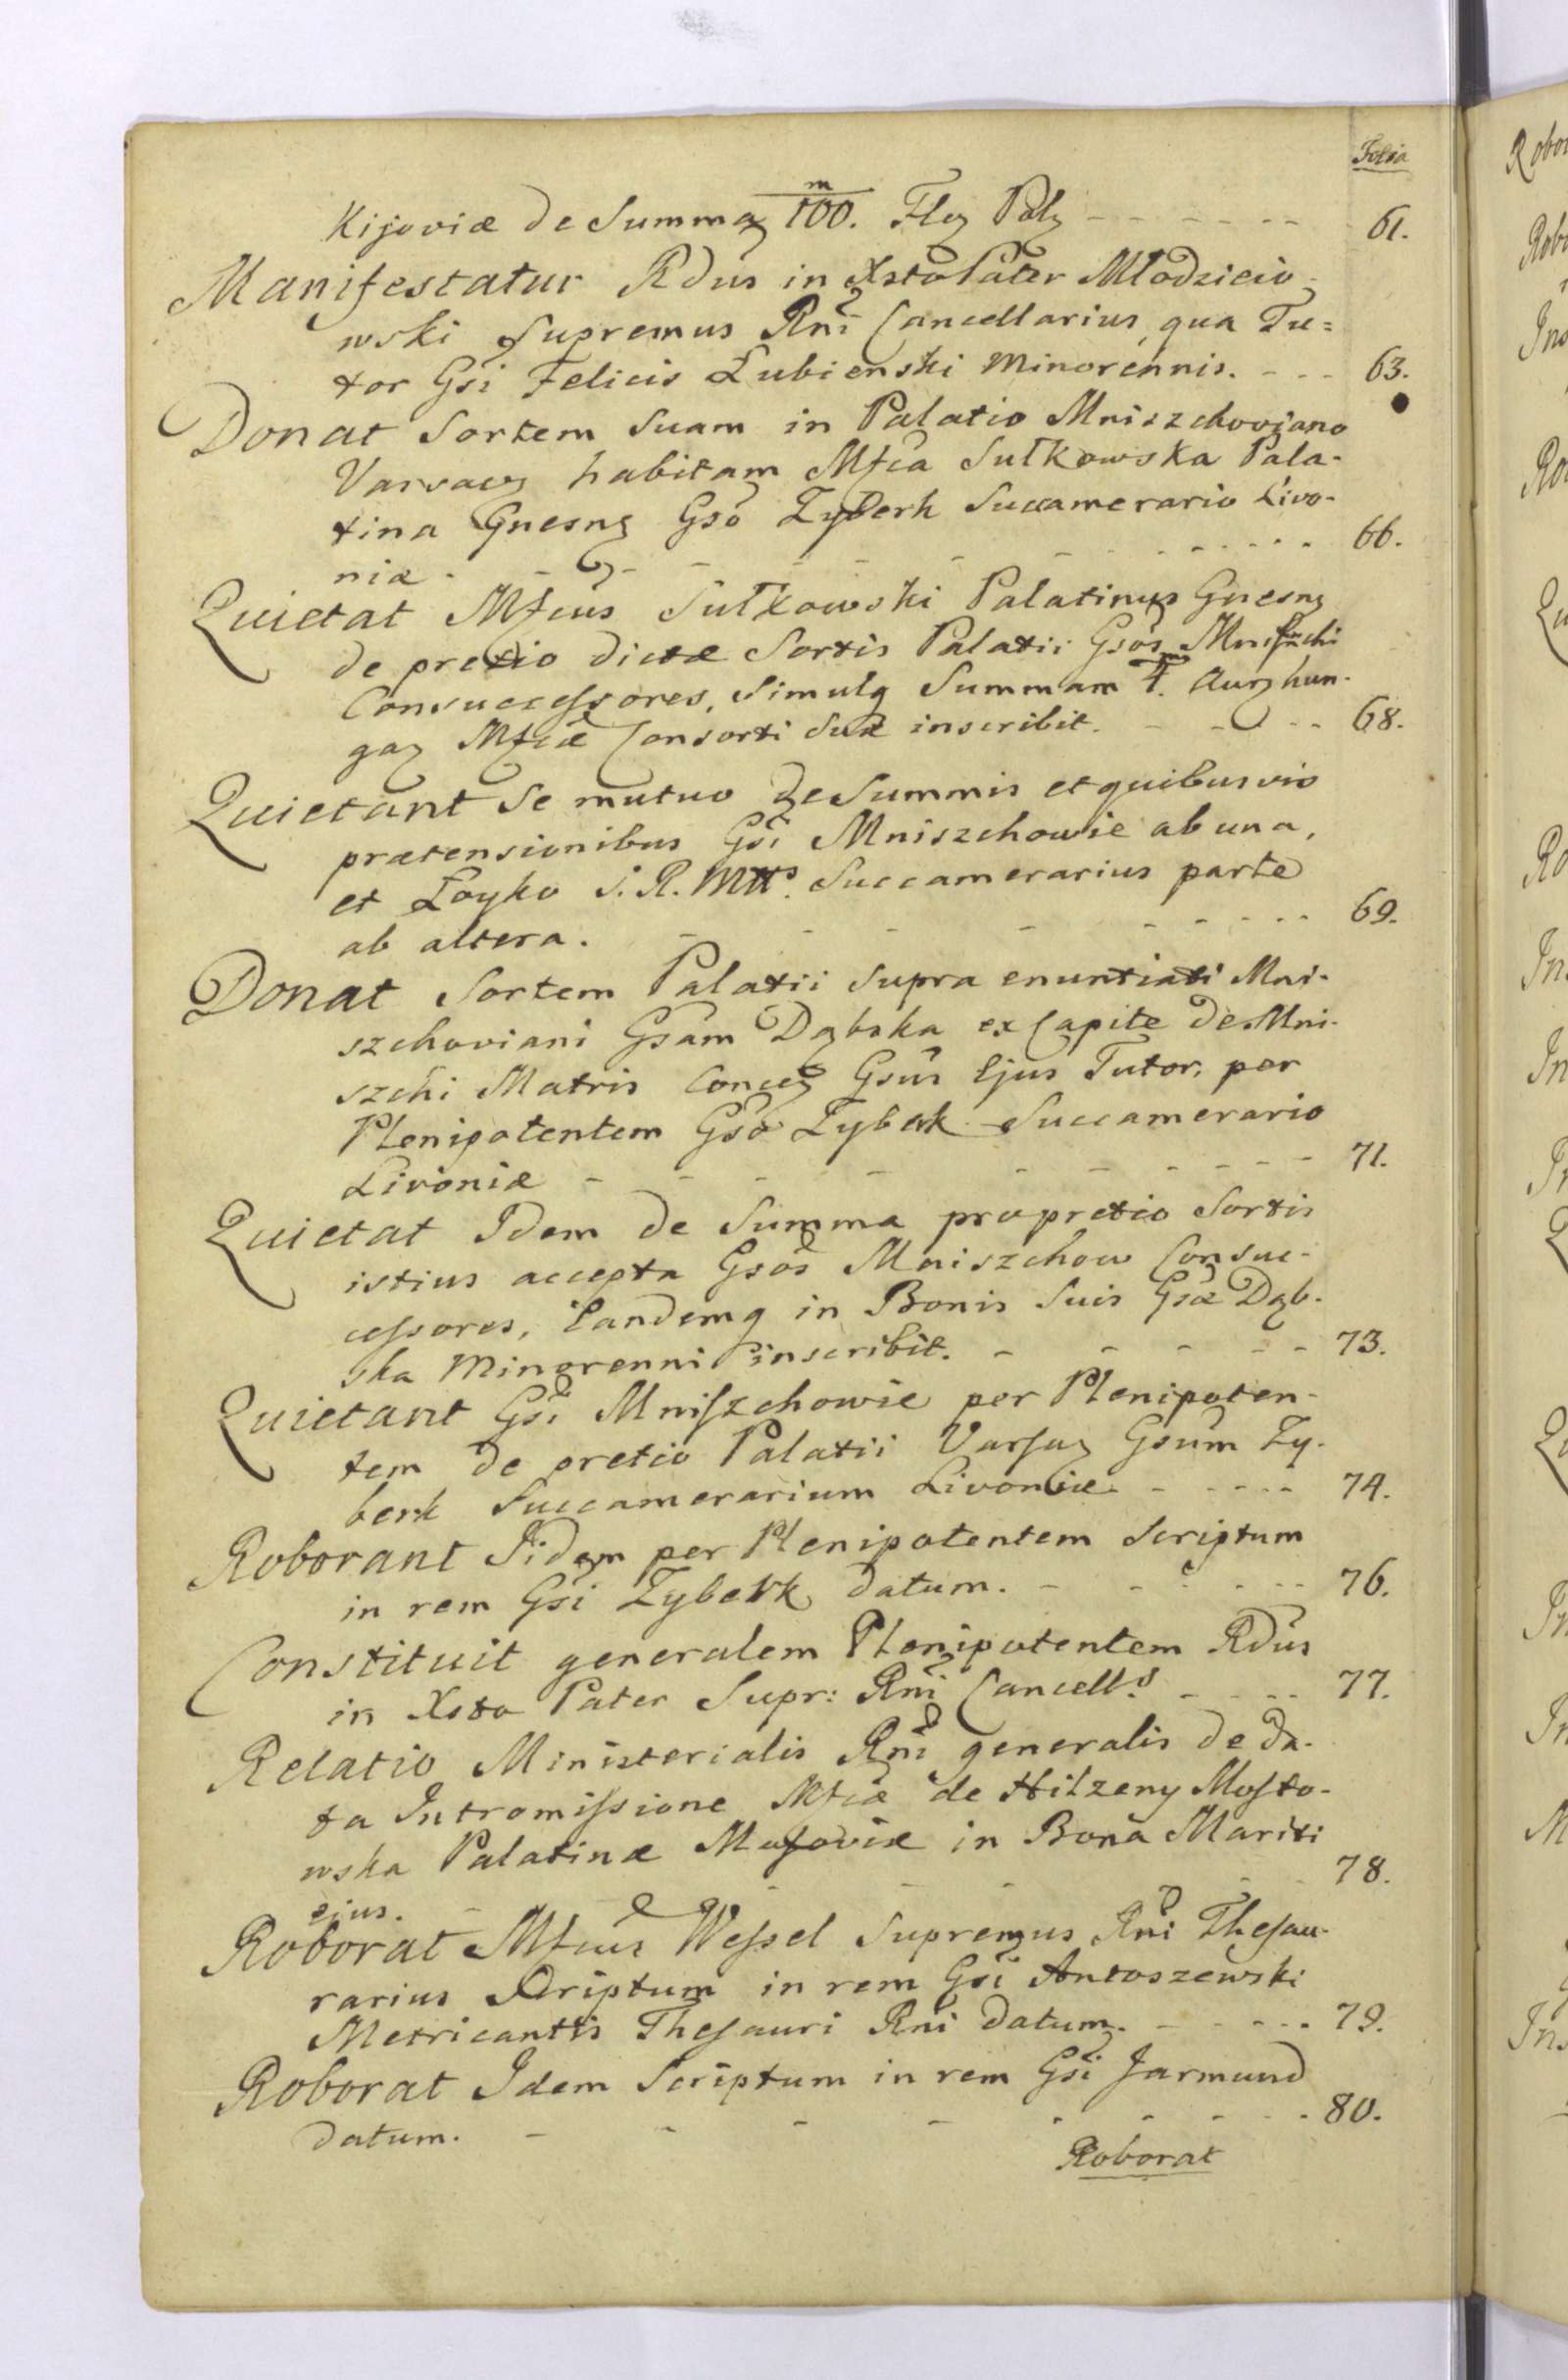 Folia
Kijoviæ de Summa m/100. Floꝝ Polꝝ - - - - - - 61.
Manifestatur Rdus in Xsto Pater Młodzieio-
wski Supremus Rni Cancellarius, qua Tu=
tor Gsi Felicis Łubienski Minorennis. - - - 63.
Donat Sortem Suam in Palatio Mniszchoviano
Varsaviꝫ habitam Mfca Sułkowska Pala-
tina Gnesnꝫ Gso Zyberk Succamerario Livo-
niæ. - - - - - - - - - - 66.
Quietat Mfcus Sułkowski Palatinus Gnesnꝫ
de pretio dictæ Sortis Palatii Gsos Mniszchi
Consuccessores, Simulq Summam Aurꝫ hun-
gaꝫ Mfcæ Consorti Suæ inscribit. - - - - 68.
Quietant Se mutuo de Summis et quibusvis
prætensionibus Gsi Mniszchowie ab una,
et Łoyko S. R. Mtts. Succamerarius parte
ab altera. - - - - - - - - 69.
Donat Sortem Palatii Supra enuntiati Mni-
szchoviani Gsam Dąbska ex Capite de Mni-
szchi Matris Concꝫ Gsus Ejus Tutor, per
Plenipotentem Gso Zyberk Succamerario
Livoniæ - - - - - - - - - 71.
Quietat Idem de Summa pro pretio Sortis
istius accepta Gsos Mniszchow Consuc-
cessores, Eandemq in Bonis Suis Gsæ Dąb-
ska Minorenni inscribit. - - - - - 73.
Quietant Gsi Mniszchowie per Plenipoten-
tem de pretio Palatii Varsaꝫ Gsum Zy-
berk Succamerarium Livoniæ. - - - - - 74.
Roborant Iidem per Plenipotentem Scriptum
in rem Gsi Zyberk datum. - - - - - - 76.
Constituit generalem Plenipotentem Rdus
in Xsto Pater Supr: Rni Cancells. - - - - 77.
Relatio Ministerialis Rni generalis de da-
ta Intromissione Mfcæ de Hilzeny Mosto-
wska Palatinæ Masoviæ in Bona Mariti
ejus. - - - - - - 78.
Roborat Mfcus Wessel Supremus Rni Thesau-
rarius Scriptum in rem Gsi Antoszewski
Metricantis Thesauri Rni datum. - - - - - 79.
Roborat Idem Scriptum in rem Gsi Jarmund
datum. - - - - - - - - 80.
Roborat